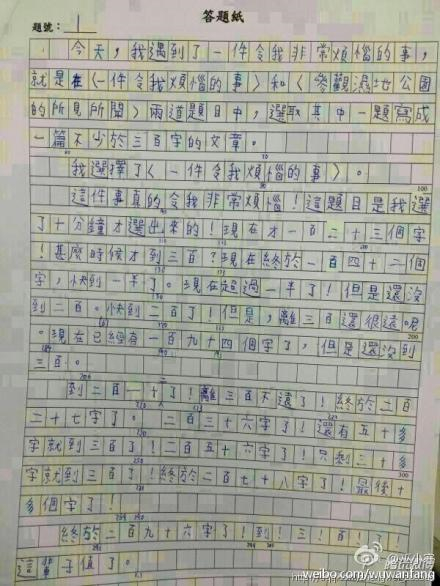 答題紙
題號：1
今天，我遇到了一件令我非常煩惱的事，
就是在〈一件令我煩惱的事〉和〈參觀濕地公園
的所見所聞〉兩道題目中，選取其中一題寫成
一篇不少於三百字的文章。
我選擇了〈一件令我煩惱的事〉。
這件事真的令我非常煩惱！這題目是我選
了十分鐘才選出來的！現在才一百二十三個字
！甚麼時候才到三百？現在終於一百四十二個
字，快到一半了。現在超過一半了！但是還沒
到二百。快到二百了！但是，離三百還很遠。
。現在已經有一百九十四個字了，但是還沒到
三百。
到二百一十了！離三百不遠了！終於二百
二十七字了。二百三十六字了！還有五十多
字就到三百了！二百五十六字了！只剩三十多
字就到三百了！終於二百七十八字了！最後十
多個字了！
終於二百九十六字了！到！三！百！了！
這輩子值了。
@严小寒
weibo.com/u/wuyanfang